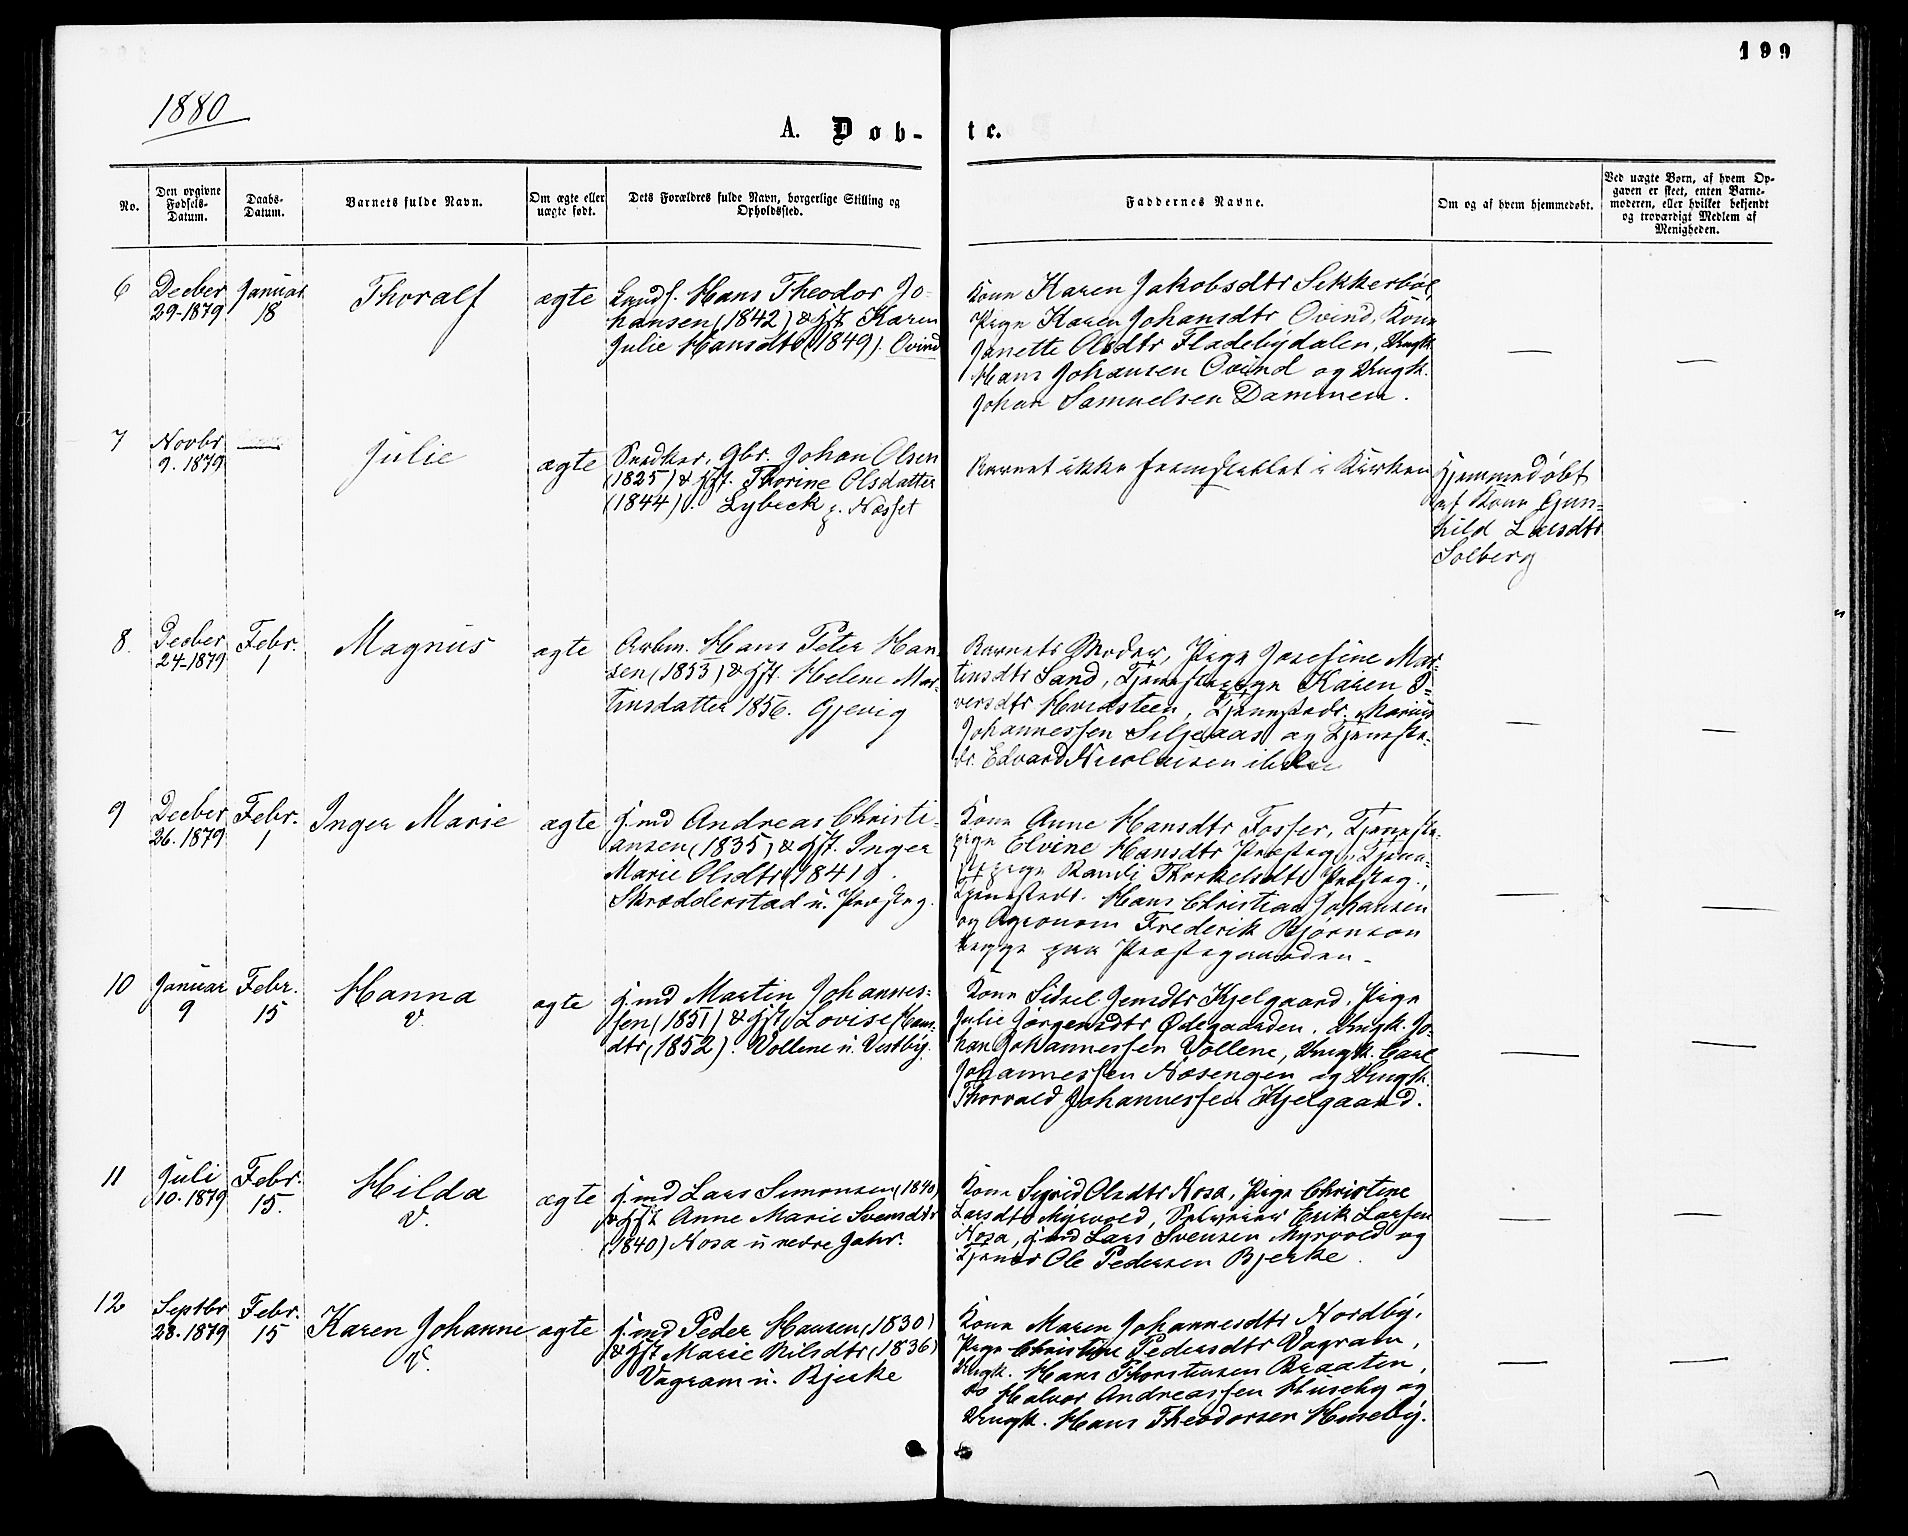 199
1880
A. Døb-
te.
No.
Den opgivne Fødsels-Datum.
Daabs-Datum.
Barnets fulde Navn.
Om ægte eller uægte født.
Dets Forældres fulde Navn, borgerlige Stilling og Opholdssted.
Faddernes Navne.
Om og af hvem hjemmedøbt.
Ved uægte Børn, af hvem Opgaven er skeet, enten Barnemoderen, eller hvilket bekjendt og troværdigt Medlem af Menigheden.
6
Decber
29-1879
Januar
18
Thoralf
ægte
Landh. Hans Theodor Jo-
hansen (1842) & Hst. Karen
Julie Hansdtr (1849). Ovind
Kone Karen Jakobsdtr Sikkerbøl,
Pige Karen Johansdtr Ovind, Kone
Janette Olsdtr Fladebydalen, Ungk.
Hans Johansen Ovind og Ungk.
Johan Samuelsen Dammen.
—
—
7
Novbr
9. 1879
—
Julie
ægte
Snedker, Gbr. Johan Olsen
(1825) & Hst. Thorine Olsdatter
(1844). Lybeck p. Næsset
Barnet ikke fremstillet i Kirken
Hjemmedøbt
af Kone Gun-
hild Larsdtr
Solberg
8.
Decber
24-1879
Febr.
1
Magnus
ægte
Arbm. Hans Peter Han-
sen (1853) & Hst. Helene Mar-
tinsdatter 1856. Gjevig
Barnets Moder, Pige Josefine Mar-
tinsdtr Sand, Tjenestepige Karen I-
versdtr Hvidsteen, Tjenestedr. Marius
Johannessen Siljeaas og Tjeneste-
dr. Edvard Nicolaisen ibidem
—
—
9
Decber
26. 1879
Febr.
1
Inger Marie
ægte
J. md Andreas Christi-
ansen (1835) & Hst. Inger
Marie Olsdtr (1841).
Skrædderstad u. Præsteg.
Kone Anne Hansdtr Fosser, Tjeneste-
pige Elvine Hansdtr Præsteg., Tjene-
stepige Randi Thorkelsdtr Præsteg.,
Tjenestedr. Hans Christian Johansen
og Agronom Frederik Bjørnson
begge paa Præstegaarden.
—
—
10
Januar
9
Febr.
15
Hanna
V.
ægte
J. md Martin Johannes-
sen (1851) & Hst. Lovise Hans-
dtr (1852). Vollene u. Vestby.
Kone Sidsel Jensdtr Kjelgaard, Pige
Julie Jørgensdtr Ødegaarden, Ungk. Jo-
han Johannessen Vollene, Ungk. Carl
Johannessen Næsengen og Ungk.
Thorvald Johannessen Kjelgaard.
—
—
11
Juli
10. 1879
Febr.
15.
Hilda
V.
ægte
J. md Lars Simonsen (1840)
& Hst. Anne Marie Svensdtr
(1840) Nosa u nedre Gahr.
Kone Sigrid Olsdtr Nosa, Pige Christine
Larsdtr Myrvold, Selveier Erik Larsen
Nosa, J. md Lars Svensen Myrvold og
Tjener Ole Pedersen Bjerke.
—
—
12
Septbr
28. 1879
Febr.
15
Karen Johanne
V.
ægte
J. md Peder Hansen (1830)
& Hst. Marie Nilsdtr (1836)
Vagram u. Bjerke
Kone Maren Johannesdtr Nordby,
Pige Christine Pedersdtr Vagram,
Ungk. Hans Thorstensen Braaten,
do Halvor Andreassen Huseby og
Ungk. Hans Theodorsen Huseby.
—
—